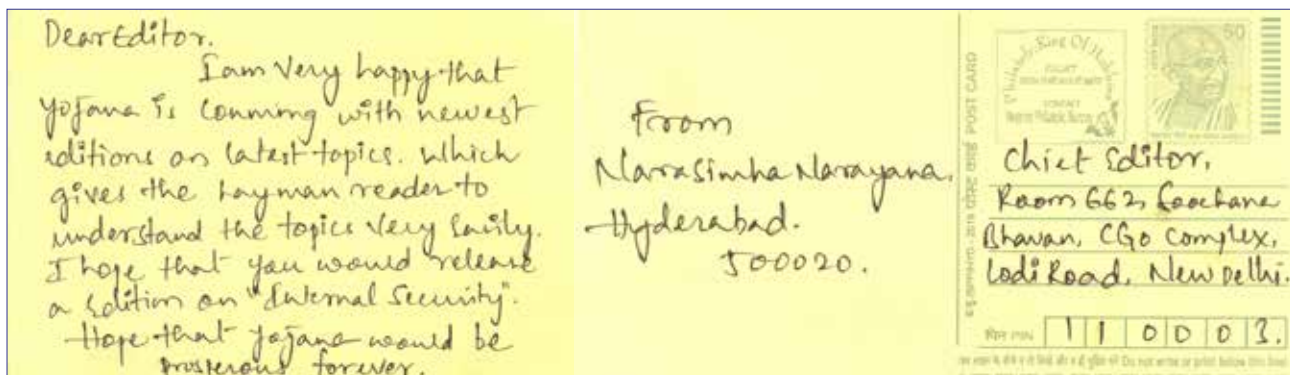 Dear Editor.
I am very happy that
Yojana is comming with newest
editions on latest topics. Which
gives the Layman reader to
understand the topics very easily.
I hope that you would release
a edition on "Internal Security".
Hope that Yojana would be
prosperous forever.
From
Narasimha Narayana.
Hyderabad.
500020.
POST CARD
पोस्ट कार्ड
50
Chief Editor,
Room 662, Soochana
Bhavan, CGO Complex,
Lodi Road, New Delhi.
पिन PIN
1 1 0 0 0 3.